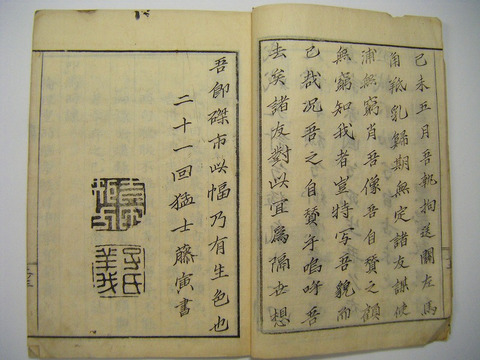 己未五月吾執拘送關左馬
角羝乳歸期無定諸友謀使
浦無窮肖吾像吾自賛之顧
無窮知我者豈特写吾貌而
已哉况吾之自賛乎嗚呼吾
去矣諸友對此宜爲隔世想
吾即磔市此幅乃有生色也
二十一回猛士藤寅書